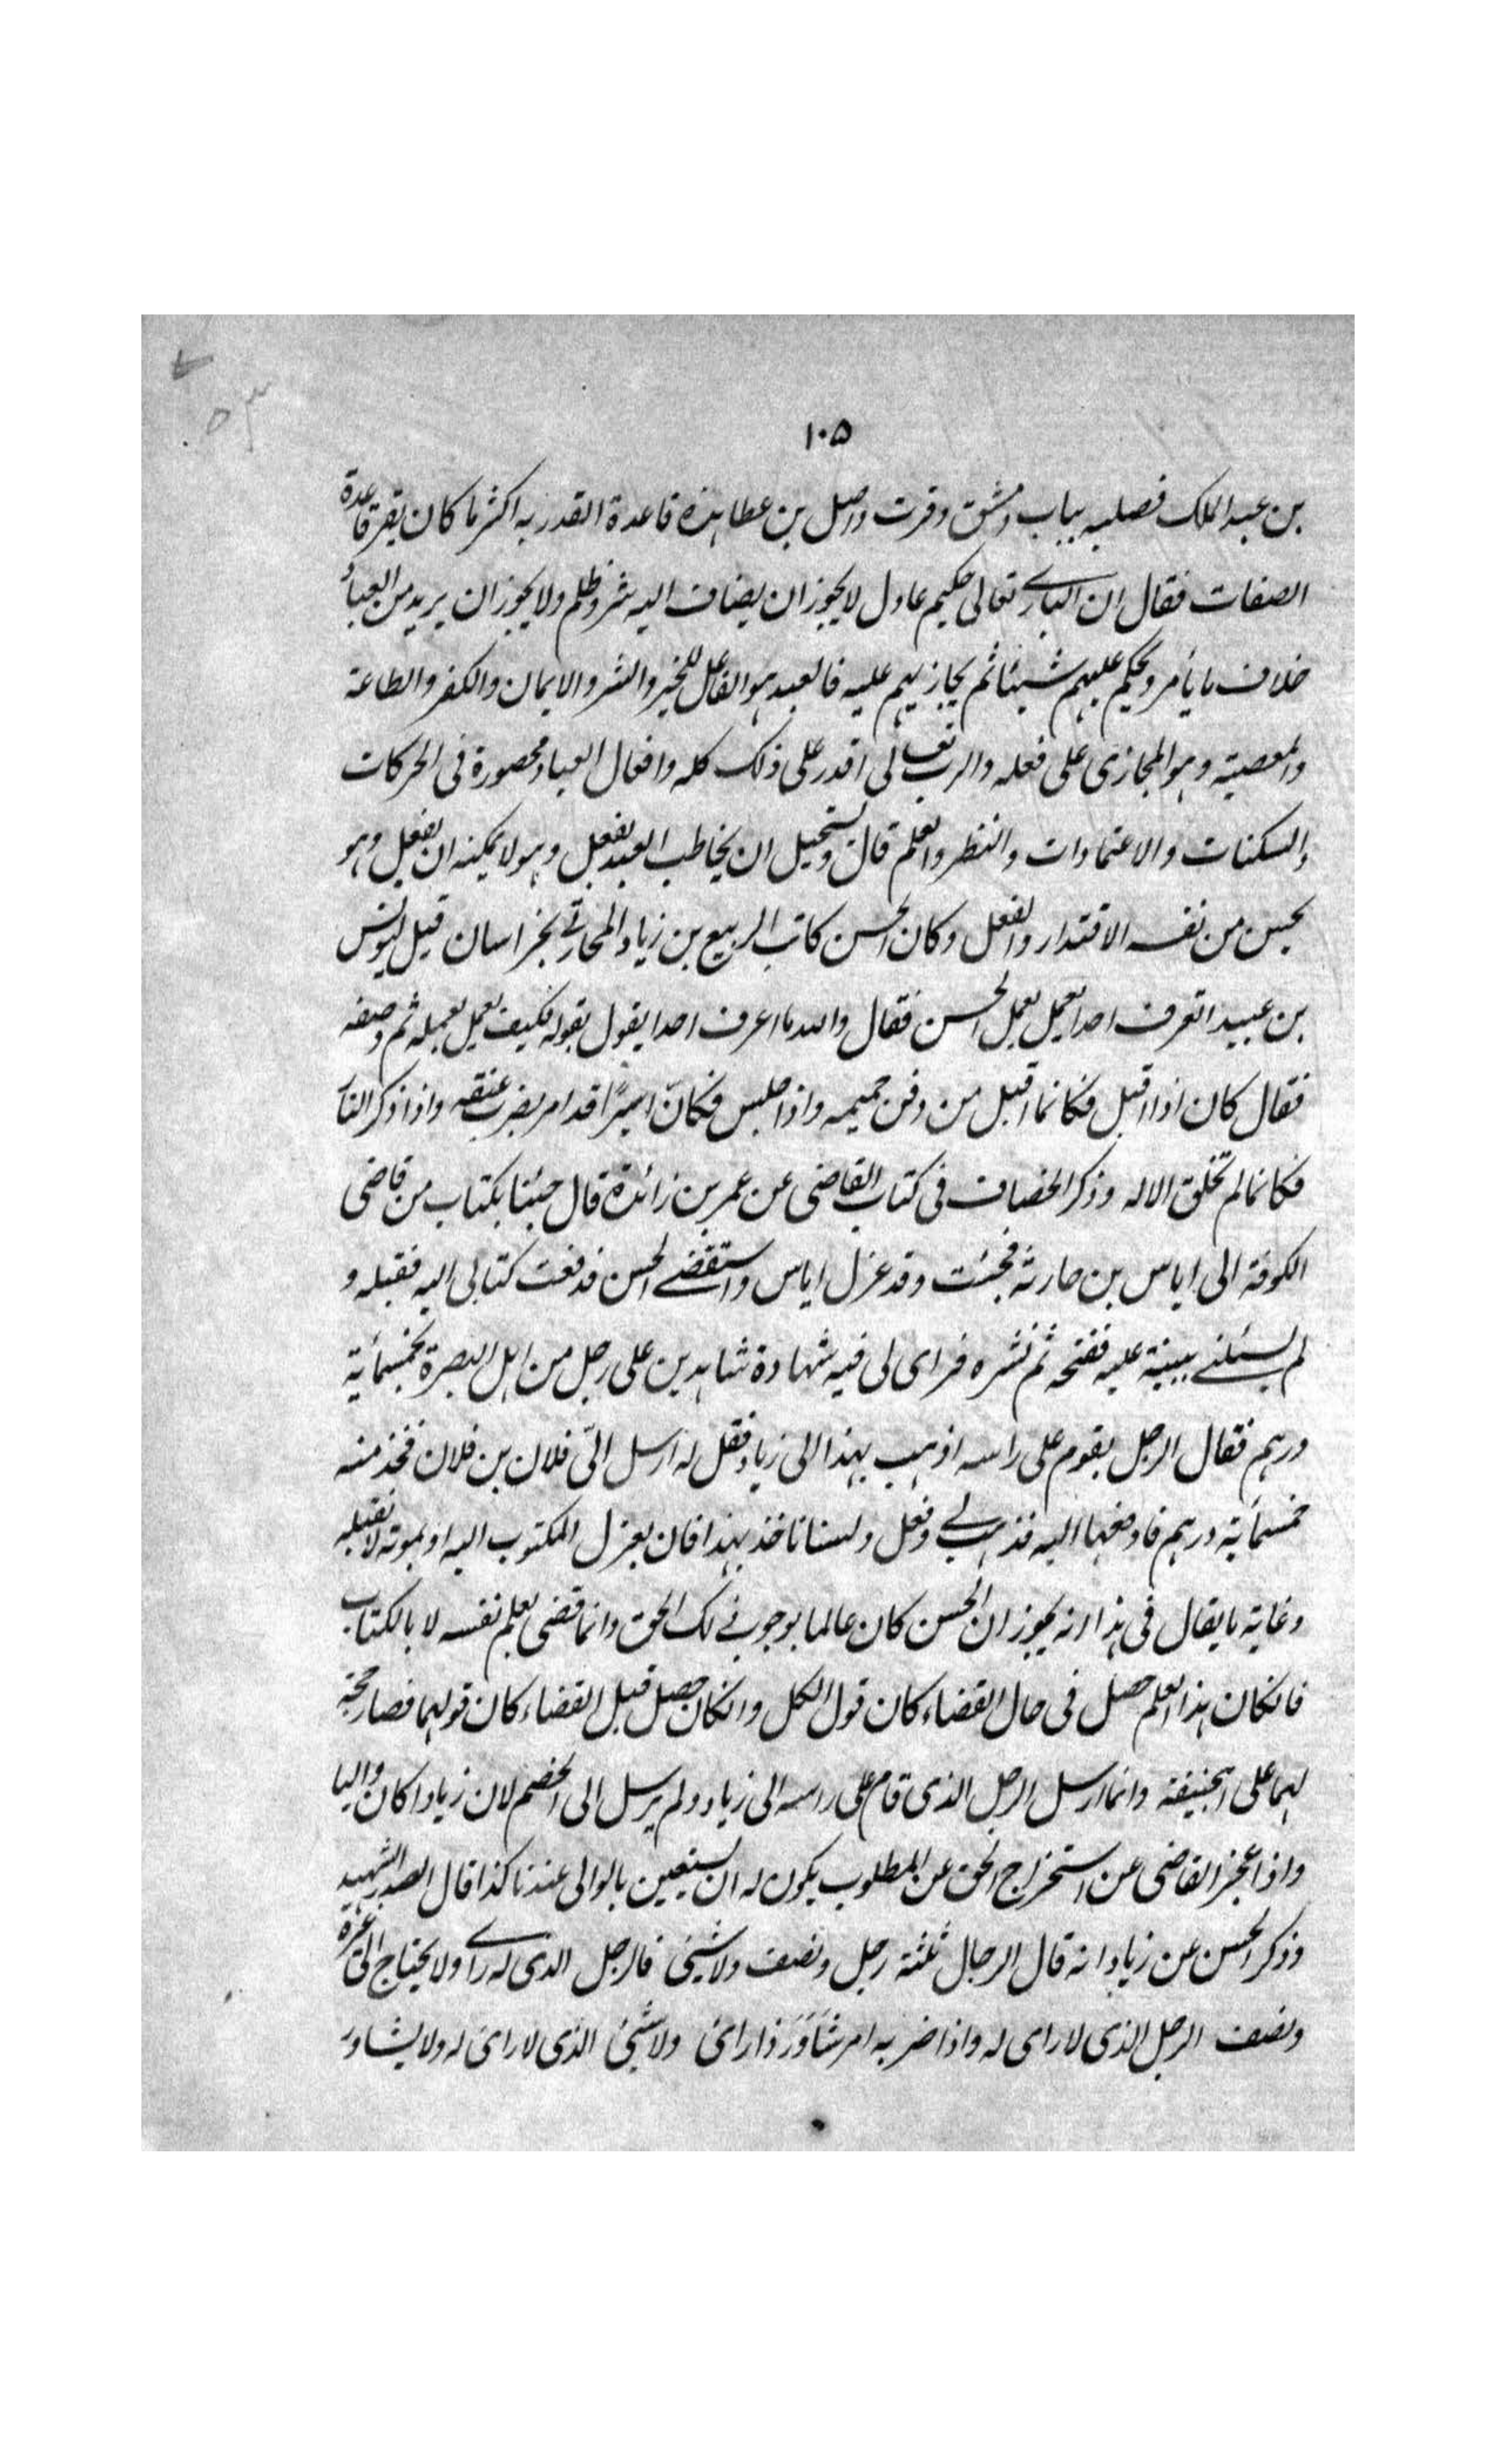 ١٠٥
بن عبد الملك فصلبه بباب دمشق وقرت واصل بن عطا هذه قاعدة القدر به اكثر ما كان يقرر قاعدة
الصفات فقال ان الباري تعالى حكيم عادل لا يجوز ان يضاف اليه شر وظلم ولا يجوز ان يريد من العباد
خلاف ما يأمر ويحكم عليهم شيئا ثم يجازيهم عليه فالعبد هو الفاعل للخير والشر والايمان والكفر والطاعة
والمعصية وهو المجازى على فعله والرب تعالى اقدر على ذلك كله وافعال العباد محصورة فى الحركات
والسكنات والاعتمادات والنظر والعلم قال ويستحيل ان يخاطب العبد بفعل وهو لا يمكنه ان يفعل وهو
يحس من نفسه الاقتدار والفعل وكان الحسن كاتب الربيع بن زياد المحارثي بخراسان قيل ليونس
بن عبيد اتعرف احدا يعمل بعمل الحسن فقال والله ما اعرف احدا يقول بقوله فكيف يعمل بعمله ثم وصفه
فقال كان اذا اقبل فكانما اقبل من دفن حميمه واذا جلس فكانّ اسيرًا قد امر بضرب عنقه واذا ذكر النار
فكانما لم تخلق الا له وذكر الخصاف فى كتاب القاضى عن عمر بن زائدة قال جئنا بكتاب من قاضى
الكوفة الى اياس بن حارثة فجئت وقد عزل اياس واستقضے الحسن فدفعت كتابى اليه فقبله و
لم يسئلنے ببينة عليه ففتحه ثم نشره فراى لى فيه شهادة شاهدين على رجل من اهل البصرة بخمسمأية
درهم فقال الرجل يقوم على راسه اذهب بهذا الى زياد فقل له ارسل الىّ فلان بن فلان فخذ منه
خمسمأية درهم فادفعها اليه فذهب بے وفعل ولسنا ناخذ بهذا فان بعزل المكتوب اليه او بموته لا نقبله
وغاية ما يقال فى هذا انه يجوز ان الحسن كان عالما بوجوب ذلك الحق وانما قضى بعلم نفسه لا بالكتاب
فانكان هذا العلم حصل فى حال القضاء كان قول الكل وانكان حصل قبل القضاء كان قولهما فصار حجة
لهما على ابحنيفة وانما ارسل الرجل الذى قام على راسه الى زياد ولم يرسل الى الخصم لان زيادا كان واليا
واذا عجز القاضى عن استخراج الحق عن المطلوب يكون له ان يستعين بالوالى عندنا كذا قال الصدر الشهيد
وذكر الحسن عن زياد انه قال الرجال ثلثة رجل ونصف ولاشيئ فالرجل الذى له رأے ولا يحتاج الى غيره
ونصف الرجل الذى لا راى له واذا ضر به امر شَاوَرَ ذا رائ ولاشيئ الذى لا رائ له ولا يشاور